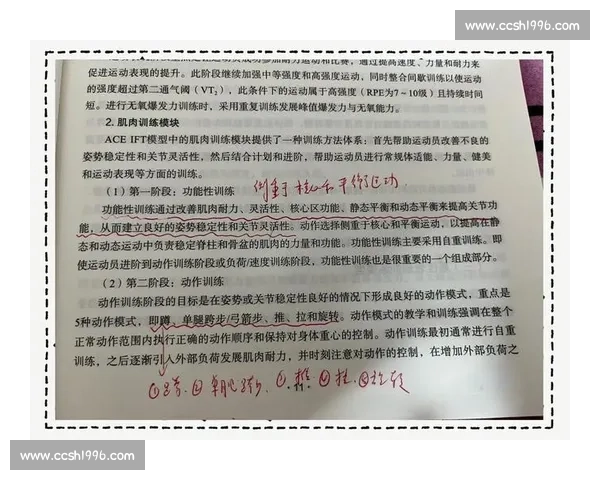 www.ccsh1996.com
促进运动表现的提升。此阶段继续加强中等强度和高强度运动，同时整合间歇训练以使运动
的强度超过第二通气阈（VT₂），此条件下的运动属于高强度（RPE为7～10级）且持续时间
短。进行无氧爆发力训练时，采用重复训练发展峰值爆发力与无氧能力。
2. 肌肉训练模块
ACE IFT模型中的肌肉训练模块提供了一种训练方法体系：首先帮助运动员改善不良的
姿势稳定性和关节灵活性，然后结合计划和进阶，帮助运动员进行常规体适能、力量、健美
和运动表现等方面的训练。
（1）第一阶段：功能性训练
侧重于核心和平衡运动
功能性训练通过改善肌肉耐力、灵活性、核心区功能、静态平衡和动态平衡来提高关节功
能，从而建立良好的姿势稳定性和关节灵活性。动作选择侧重于核心和平衡运动，以提高在静
态和动态运动中负责稳定脊柱和骨盆的肌肉的力量和功能。功能性训练主要采用自重训练。即
使运动员进阶到动作训练阶段或负荷/速度训练阶段，功能性训练也是很重要的一个组成部分。
（2）第二阶段：动作训练
动作训练阶段的目标是在姿势或关节稳定性良好的情况下形成良好的动作模式，重点是
5种动作模式，即蹲、单腿跨步/弓箭步、推、拉和旋转。动作模式的教学和训练强调在整个
正常动作范围内执行正确的动作顺序和保持对身体重心的控制。动作训练最初通常进行自重
训练，之后逐渐引入外部负荷发展肌肉耐力，并时刻注意对动作的控制，在增加外部负荷之
www.ccsh1996.com